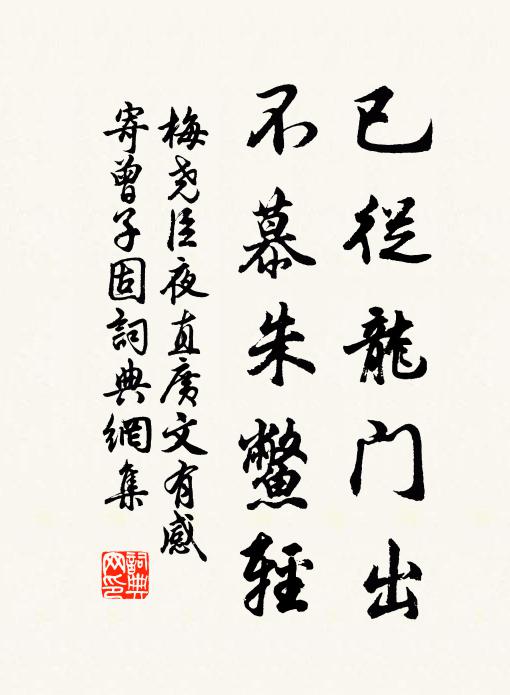 已從龍门出
不慕朱鱉輕
梅尧臣夜直廣文有感
寄曾子固詞典網集
詞典
网印